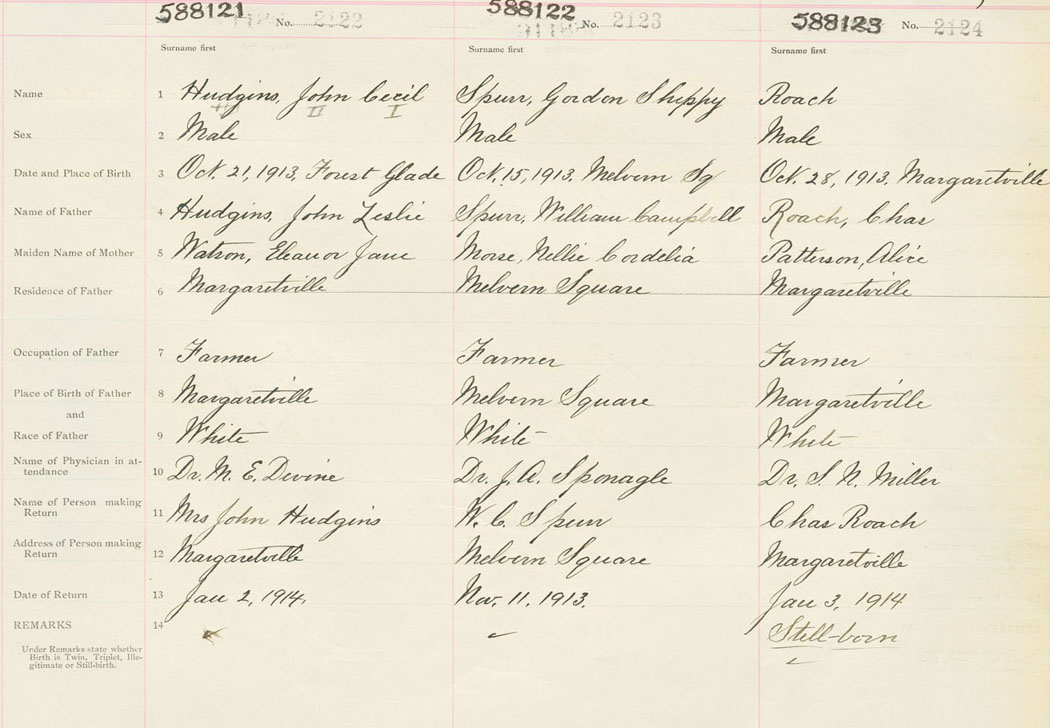 588121 No. 2122 588122 No. 2123 588123 No. 2124
Surname first Surname first Surname first
Name 1 Hudgins, John Cecil Spurr, Gordon Shippy Roach
II I
Sex 2 Male Male Male
Date and Place of Birth 3 Oct. 21, 1913, Forest Glade Oct. 15, 1913. Melvern Sq Oct. 28, 1913. Margaretville
Name of Father 4 Hudgins, John Leslie Spurr, William Campbell Roach, Chas
Maiden Name of Mother 5 Watson, Eleanor Jane Morse, Nellie Cordelia Patterson, Alice
Residence of Father 6 Margaretville Melvern Square Margaretville
Occupation of Father 7 Farmer Farmer Farmer
Place of Birth of Father 8 Margaretville Melvern Square Margaretville
and
Race of Father 9 White White White
Name of Physician in at-
tendance 10 Dr. M. E. Divine Dr. J. A. Sponagle Dr. S. N. Miller
Name of Person making
Return 11 Mrs John Hudgins W. C. Spurr Chas Roach
Address of Person making
Return 12 Margaretville Melvern Square Margaretville
Date of Return 13 Jan 2, 1914. Nov. 11. 1913. Jan 3, 1914
REMARKS 14 Still-born
Under Remarks state whether
Birth is Twin, Triplet, Ille-
gitimate or Still-birth.